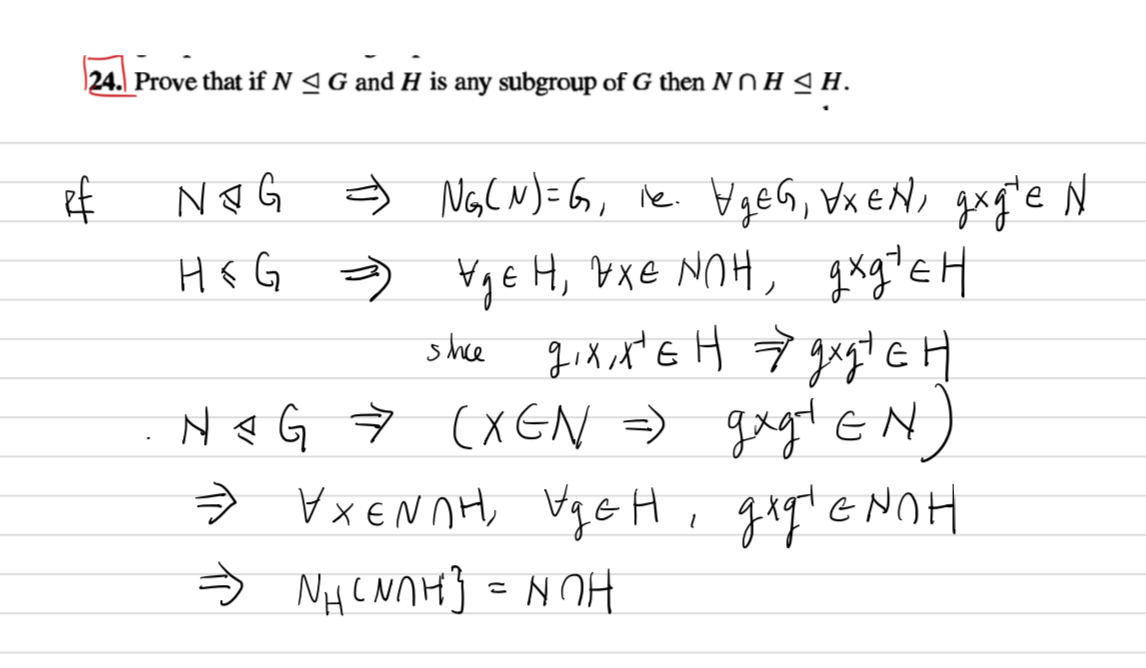 24. Prove that if N ⊴ G and H is any subgroup of G then N ∩ H ⊴ H.
pf N ⊴ G ⇒ N_G(N)=G, ie. ∀g∈G, ∀x∈N, gxg⁻¹∈ N
H ≤ G ⇒ ∀g∈H, ∀x∈ N∩H, gxg⁻¹∈H
since g,x,x⁻¹∈ H ⇒ gxg⁻¹ ∈ H
. N ⊴ G ⇒ (x∈N ⇒ gxg⁻¹ ∈ N)
⇒ ∀x∈N∩H, ∀g∈H, gxg⁻¹ ∈N∩H
⇒ N_H(N∩H} = N∩H